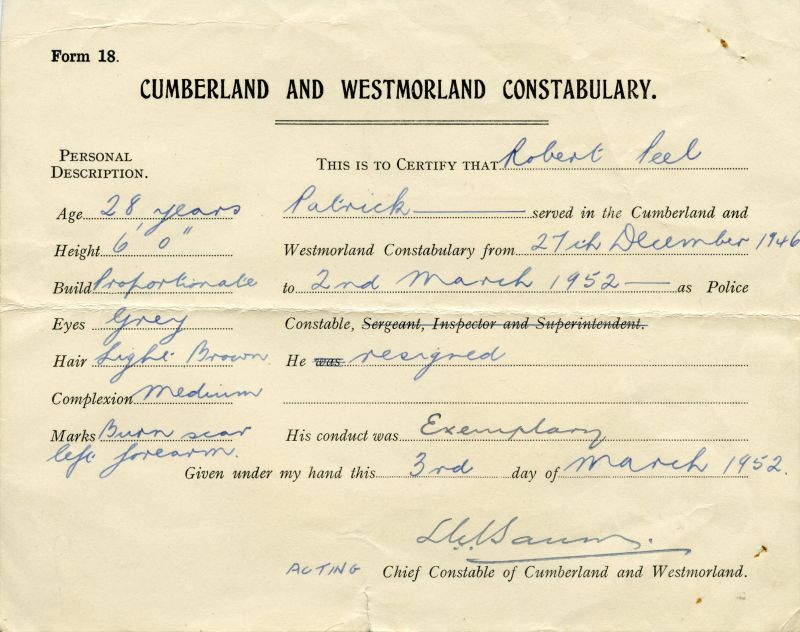 Form 18.
CUMBERLAND AND WESTMORLAND CONSTABULARY.
PERSONAL DESCRIPTION.
Age 28 years
Height 6' 0"
Build Proportionate
Eyes Grey
Hair Light Brown
Complexion Medium
Marks Burn scar
left forearm.
THIS IS TO CERTIFY THAT Robert Peel
Patrick served in the Cumberland and
Westmorland Constabulary from 27th December 1946
to 2nd March 1952 as Police
Constable, Sergeant, Inspector and Superintendent.
He was resigned
His conduct was Exemplary
Given under my hand this 3rd day of March 1952.
ACTING Chief Constable of Cumberland and Westmorland.